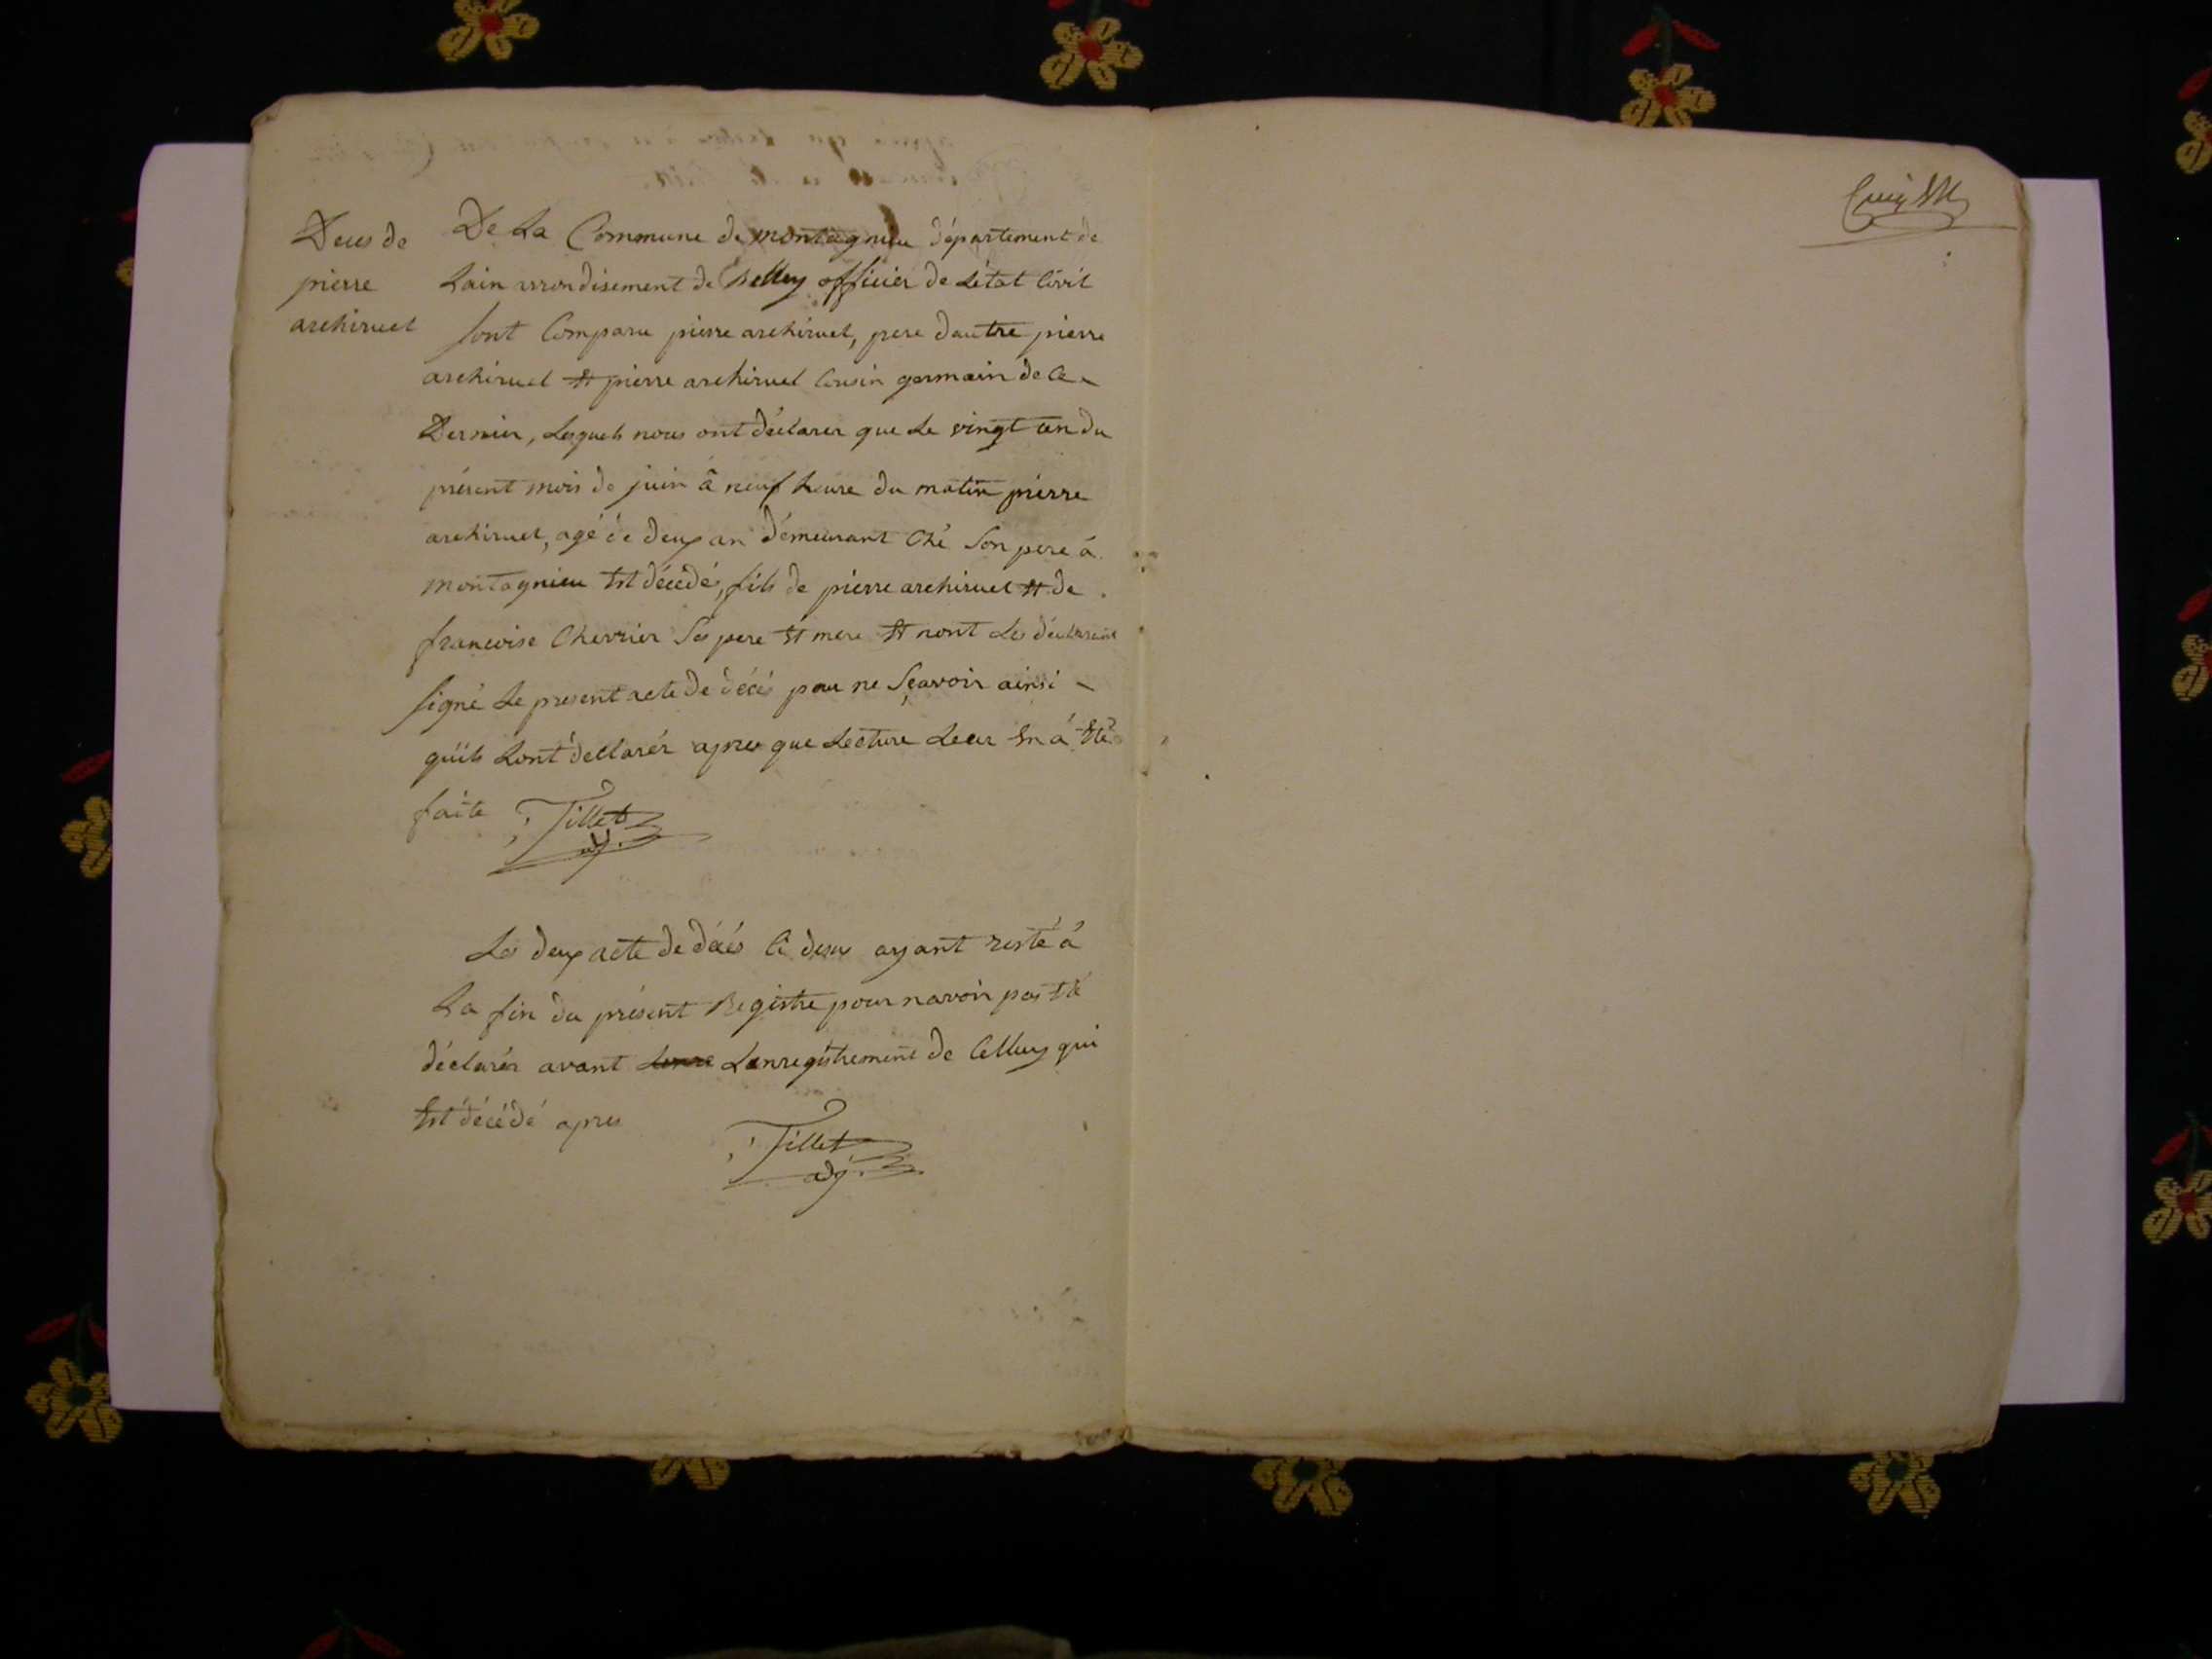 Deces de
pierre
archiruel
De La Commune de montagnieu département de
Lain arrondisement de Belley officier de Létat Civil
sont Comparu pierre archiruel, pere dautre pierre
archiruel Et pierre archiruel Cousin germain de Ce
Dernier, Lesquels nous ont déclarer que Le vingt un du
présent mois de juin â neuf heure du matin pierre
archiruel, agé de deux an démeurant Ché Son pere á
montagnieu Est décedé, fils de pierre archiruel Et de
francoise Chevrier Ses pere Et mere Et nont Les déclarant
signé Le present acte de décés pour ne Sçavoir ainsi
quils Lont déclarér apres que Lecture Leur En á Eté
faite Tillet
adj.
Les deux acte de décés Ci desus ayant resté á
La fin du présent Registre pour navoir pas Eté
déclarér avant Lenregistrement de Celluy qui
Est décédé apres
Tillet
adj.